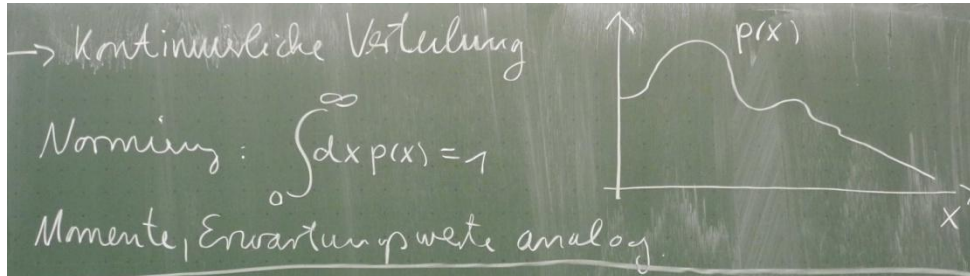 → Kontinuierliche Verteilung
p(x)
Normierung: ∫₀^∞ dx p(x) = 1
x
Momente, Erwartungswerte analog.